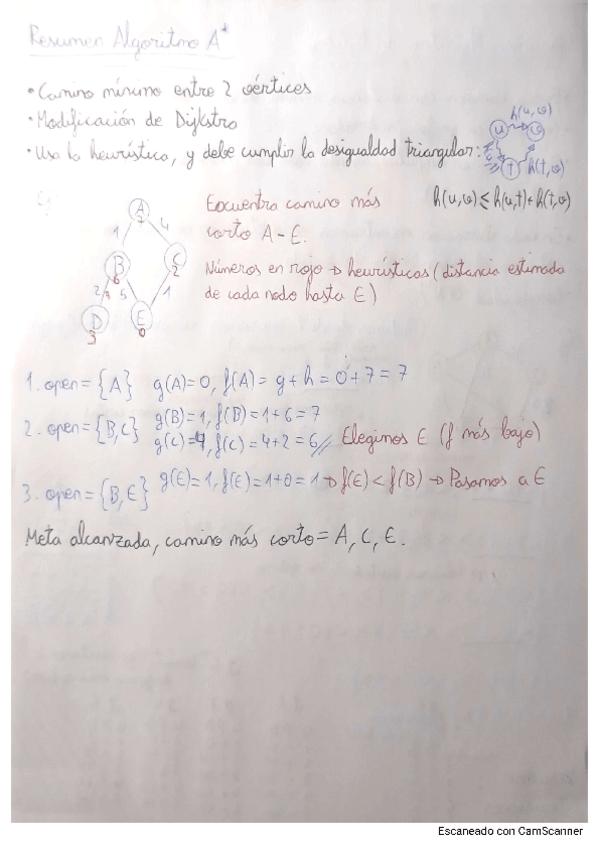 Resumen Algoritmo A*
• Camino mínimo entre 2 vértices
• Modificación de Dijkstra
• Usa la heurística, y debe cumplir la desigualdad triangular:
h(u,v)
u
v
t
h(t,v)
h(u,v) ≤ h(u,t) + h(t,v)
Ej
Encuentra camino más
corto A - E.
Números en rojo → heurísticas (distancia estimada
de cada nodo hasta E)
A
7
1
4
B
6
C
2
2
5
1
D
3
E
0
1. open = {A} g(A)=0, f(A) = g + h = 0+7 = 7
2. open = {B,C} g(B)=1, f(B)=1+6=7
g(C)=4, f(C)=4+2=6 // Elegimos E (f más bajo)
3. open = {B,E} g(E)=1, f(E)=1+0=1 → f(E)<f(B) → Pasamos a E
Meta alcanzada, camino más corto = A, C, E.
Escaneado con CamScanner